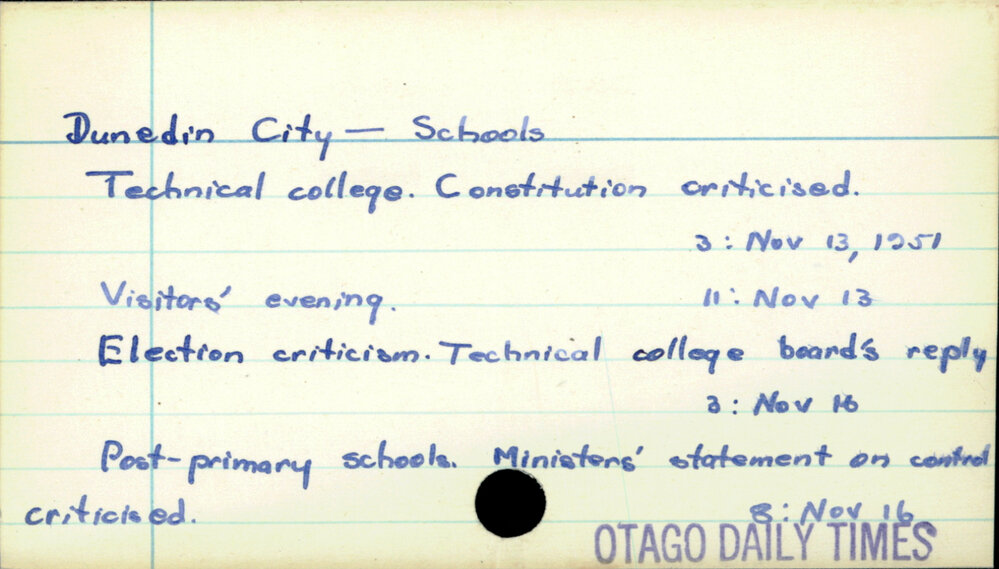 Dunedin City — Schools
Technical college. Constitution criticised.
3: Nov 13, 1951
Visitors' evening. 11: Nov 13
Election criticism. Technical college board's reply
3: Nov 16
Post-primary schools. Ministers' statement on control
criticised. 8: Nov 16
OTAGO DAILY TIMES